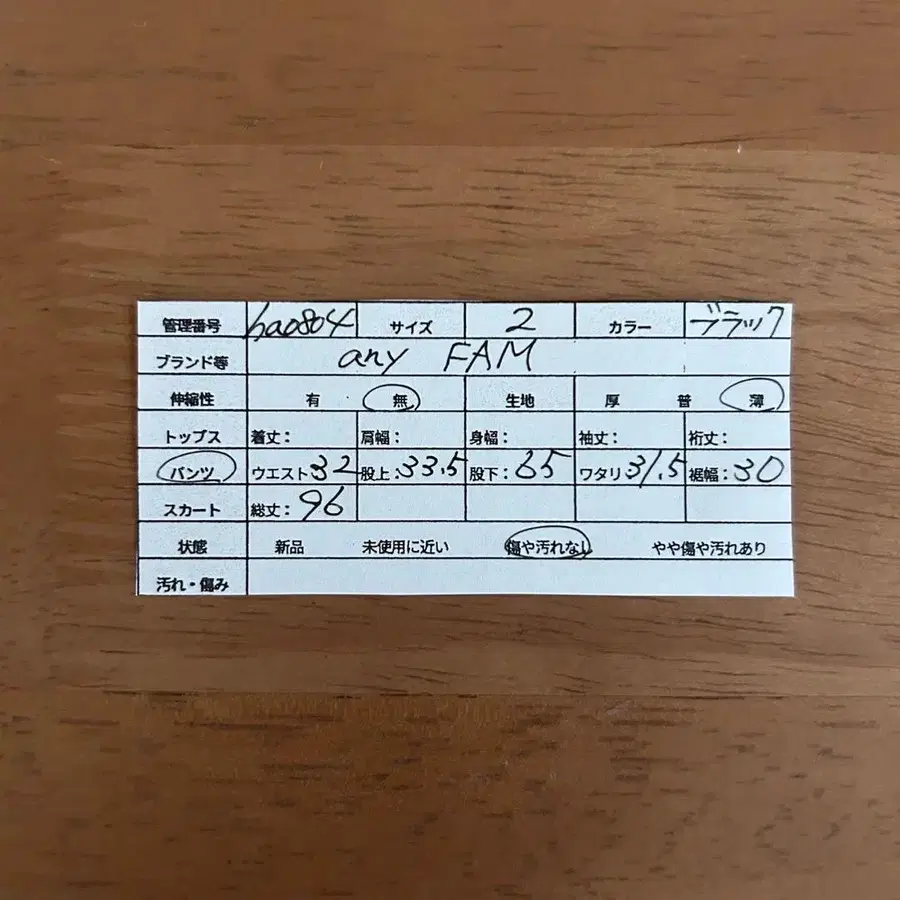 管理番号 ha0804 サイズ 2 カラー ブラック
ブランド等 any FAM
伸縮性 有 無 生地 厚 普 薄
トップス 着丈： 肩幅： 身幅： 袖丈： 裄丈：
パンツ ウエスト32 股上：33.5 股下：65 ワタリ31.5 裾幅：30
スカート 総丈：96
状態 新品 未使用に近い 傷や汚れなし やや傷や汚れあり
汚れ・傷み